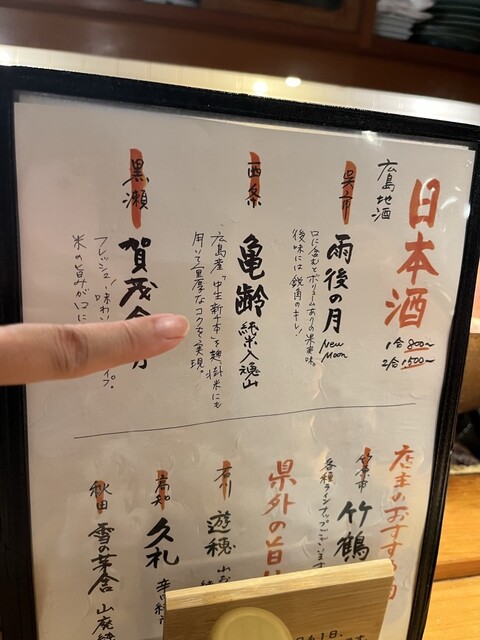 日本酒
1合 800〜
2合 1500〜
広島地酒
呉市
雨後の月
New Moon
口に含むとボリュームありの果実味。
後味には鋭角のキレ!
西条
亀齢 純米入魂山
広島産「中生新千本」を麹、掛米にも
用いて重厚なコクを実現。
黒瀬
賀茂金
フレッシュ!味わい
イプ。
米の旨みが
店主のおすすめ
竹原市
竹鶴
各種ラインナップございます
県外の旨
遊穂
高知
久礼
秋田
雪の茅舎 山廃純